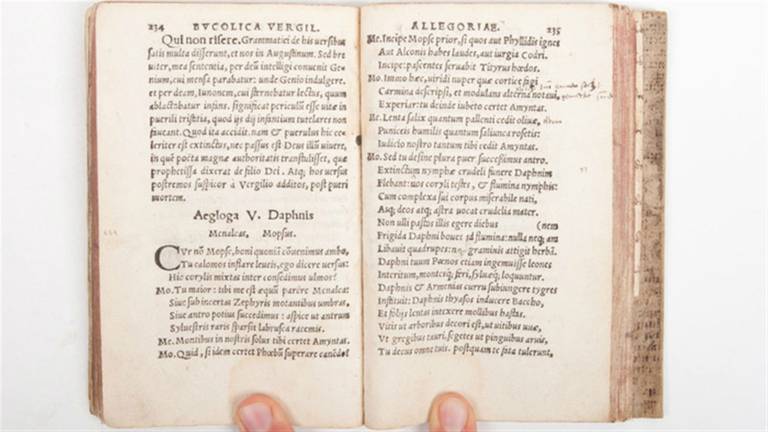 234 BVCOLICA VERGIL.
Qui non risere. Grammatici de his versibus
satis multa disserunt, et nos in Augustinum. Sed bre
uiter, mea sententia, per deũ intelligi conuenit Ge
nium, cui mensa parabatur: unde Genio indulgere.
et per deam, Iunonem, cui sternebatur lectus, quum
ablactabatur infans. significat periculũ esse uitæ in
puerili tristitia, quod ijs dij infantium tutelares non
fiueant. Quod ita accidit. nam & puerulus hic ce⸗
leriter est extinctus, nec passus est Deus illũ uiuere,
in quẽ poeta magnæ authoritatis transtulisset, quæ
prophetissa dixerat de filio Dei. Atq; hos uersus
postremos suspicor à Vergilio additos, post pueri
mortem.
Aegloga V. Daphnis
Menalcas, Mopsus.
CVr nõ Mopse, boni quoniã cõuenimus ambo,
Tu calamos inflare leueis, ego dicere versus:
Hic corylis mixtas inter consedimus ulmos?
Mo. Tu maior: tibi me est æquũ parêre Menalca:
Siue sub incertas Zephyris motantibus umbras,
Siue antro potius succedimus: aspice ut antrum
Syluestris raris sparsit labrusca racemis.
Me. Montibus in nostris solus tibi certet Amyntas.
Mo. Quid, si idem certet Phœbũ superare canẽdo?
ALLEGORIAE. 235
Me. Incipe Mopse prior, si quos aut Phyllidis ignes
Aut Alconis habes laudes, aut iurgia Codri.
Incipe: pascentes seruabit Tityrus hœdos.
Mo. Immo hæc, uiridi nuper quæ cortice fagi
Carmina descripsi, et modulans alterna notaui,
Experiar: tu deinde iubeto certet Amyntas.
Me. Lenta salix quantum pallenti cedit oliuæ,
Puniceis humilis quantum saliunca rosetis:
Iudicio nostro tantum tibi cedit Amyntas.
Mo. Sed tu desine plura puer: successimus antro.
Extinctum nymphæ crudeli funere Daphnim
Flebant: uos coryli testes, & flumina nymphis:
Cum complexa sui corpus miserabile nati,
Atq; deos atq; astra uocat crudelia mater.
Non ulli pastos illis egere diebus (nem
Frigida Daphni boues ad flumina: nulla neq; am
Libauit quadrupes: graminis attigit herbã.
Daphni tuum Pœnos etiam ingemuisse leones
Interitum, montesq; feri, syluæq; loquuntur.
Daphnis & Armenias curru subiungere tygres
Instituit: Daphnis thyasos inducere Baccho,
Et folijs lentas intexere mollibus hastas.
Vitis ut arboribus decori est, ut uitibus uuæ,
Vt gregibus tauri, segetes ut pinguibus aruis,
Tu decus omne tuis. postquam te fata tulerunt,